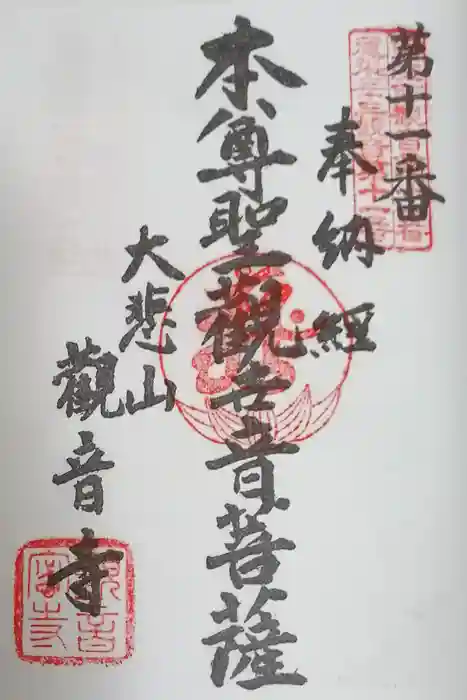 第十一番
奉納經
本尊聖觀世音菩薩
大悲山
觀音寺